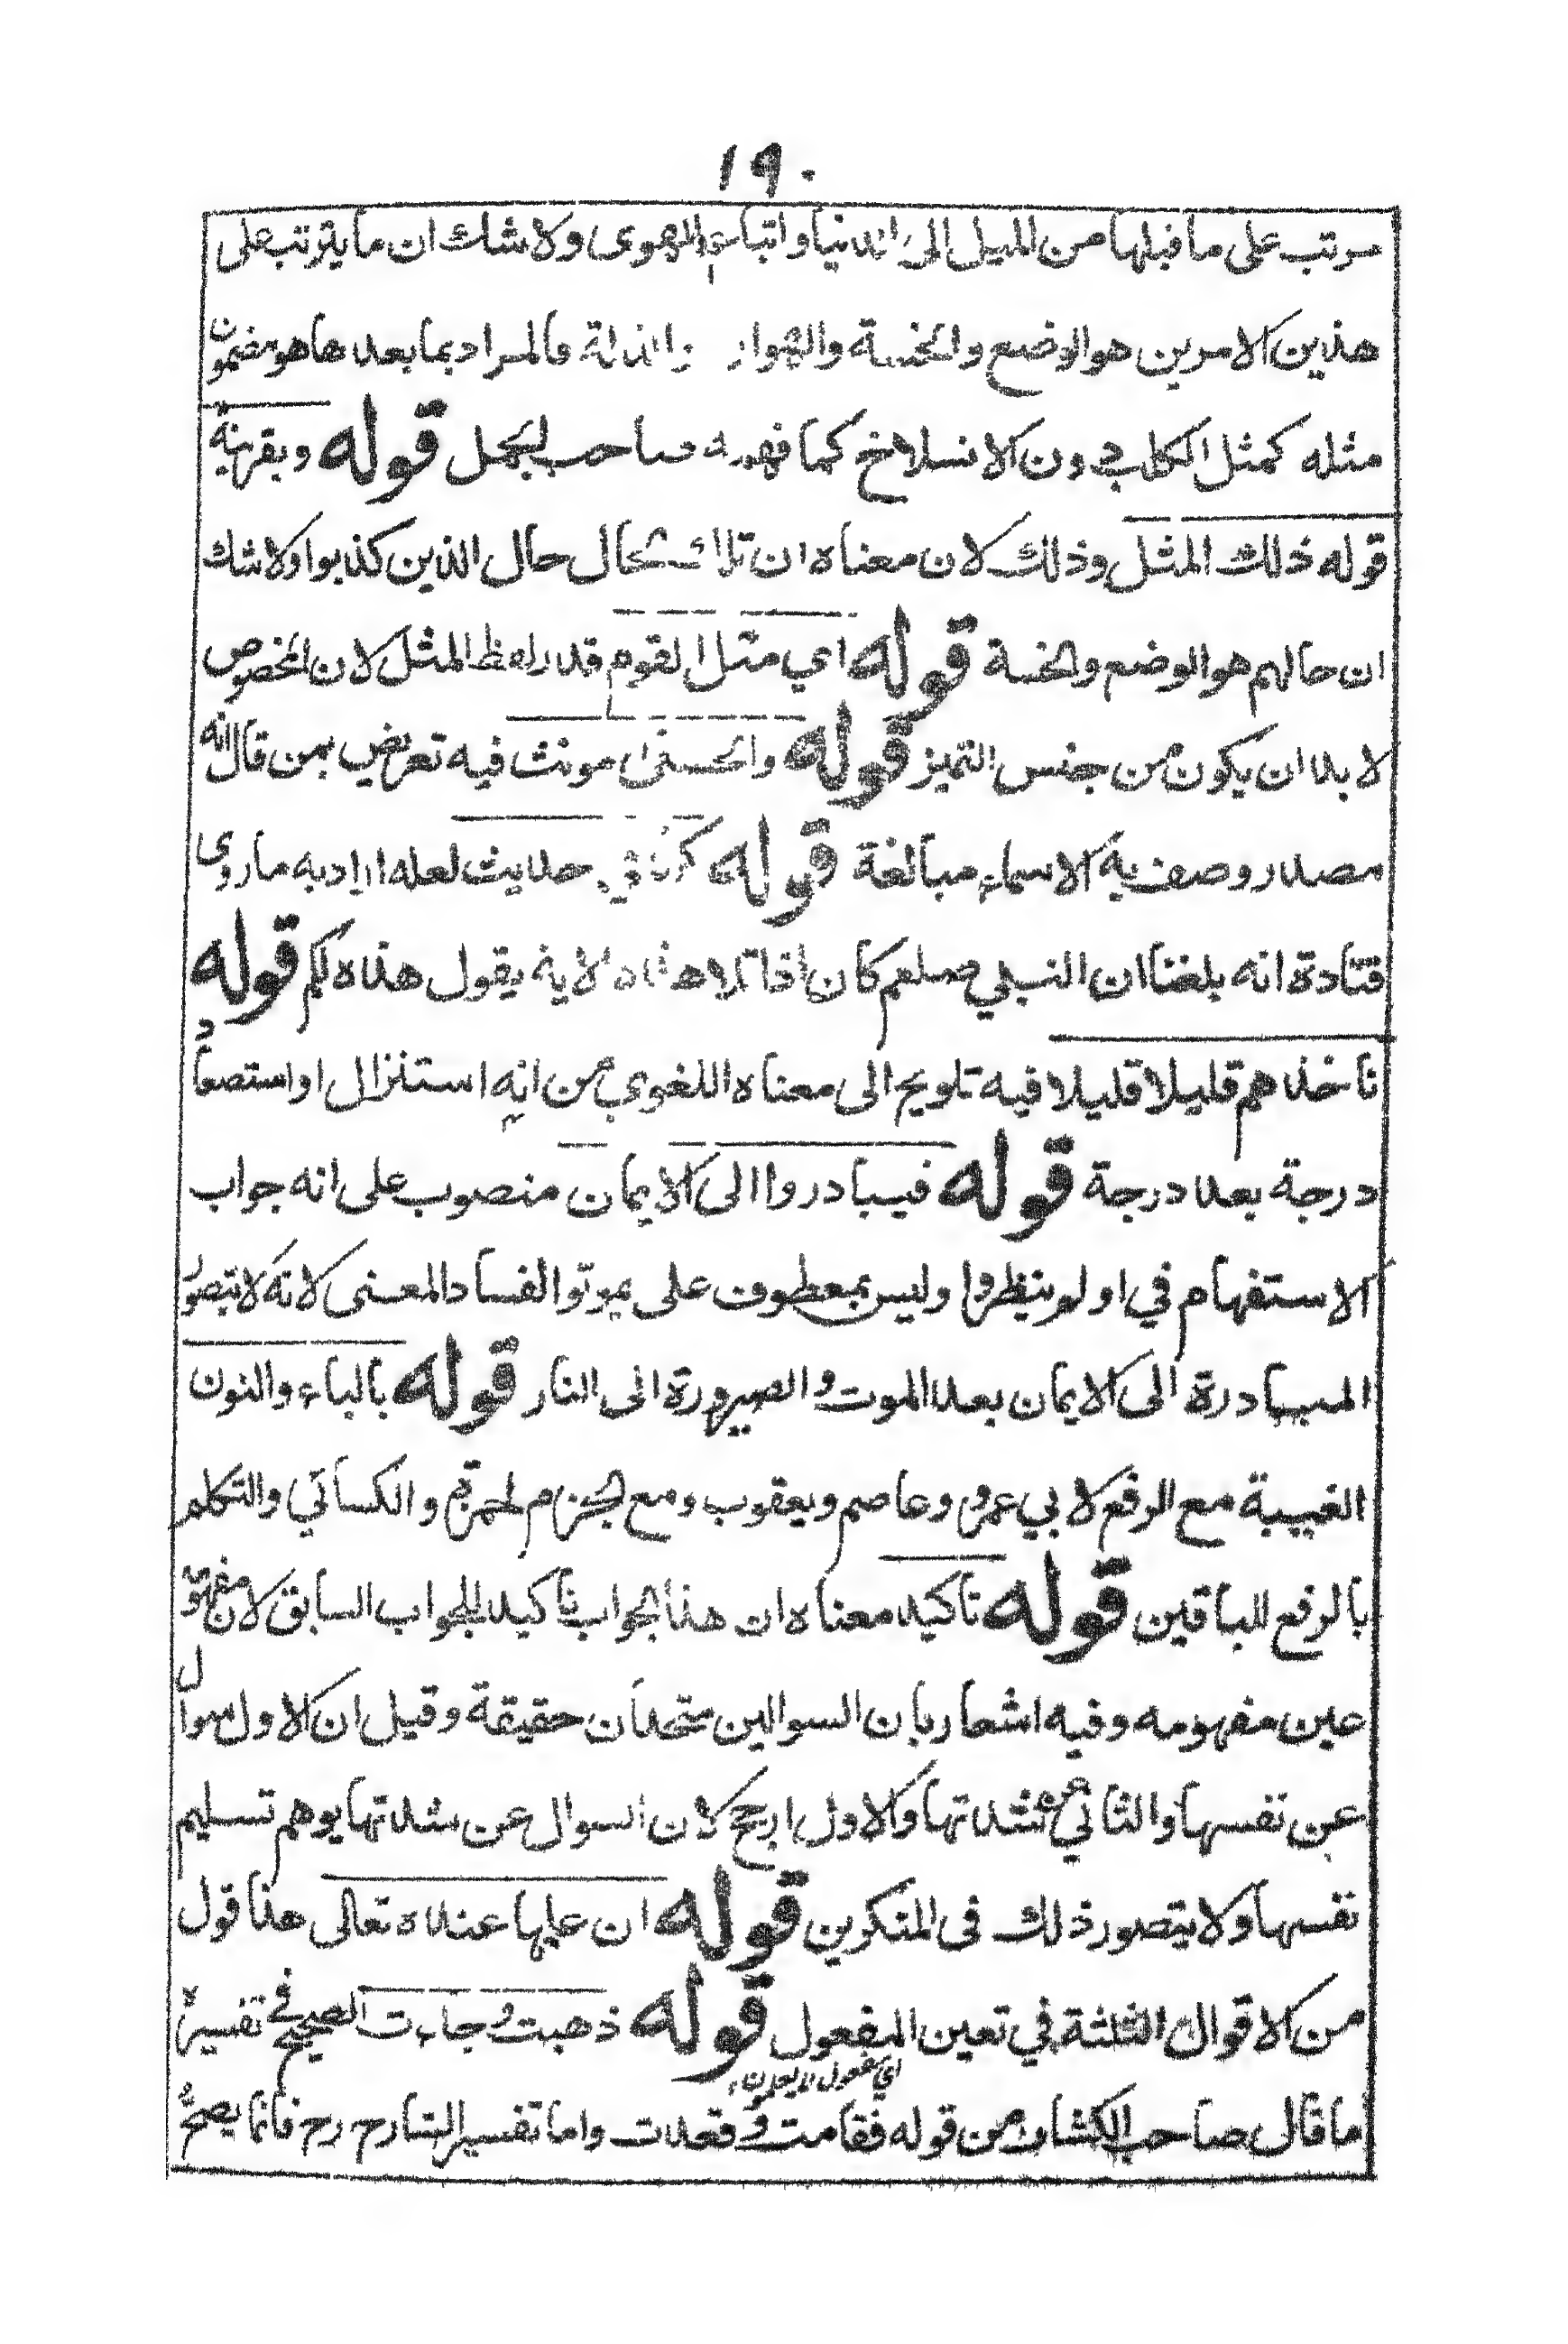 ١٩٠
مرتب على ما قبلها من الميل الى الدنيا واتباع الهوى ولا شك ان ما يترتب على
هذين الامرين هو الوضع والخسة والهوان والذلة فالمراد بما بعدها هو مضمون
مثله كمثل الكلب دون الانسلاخ كما فهمه صاحب الجمل قوله وبقرينة
قوله ذلك المثل وذلك لان معناه ان تلك الحال حال الذين كذبوا ولا شك
ان حالهم هو الوضع والخسة قوله اي مثل القوم قدر لفظ المثل لان المخصوص
لا بد ان يكون من جنس التميز قوله والحسنى مونث فيه تعريض بمن قال انه
مصدر وصف به الاسماء مبالغة قوله كما في حديث لعله اراد به ما روى
قتادة انه بلغنا ان النبي صلعم كان اذا تلا هذه الاية يقول هذه لكم قوله
ناخذهم قليلا قليلا فيه تلويح الى معناه اللغوي من انه استنزال او استصعاد
درجة بعد درجة قوله فيبادروا الى الايمان منصوب على انه جواب
الاستفهام في اولم ينظروا وليس بمعطوف على يموتوا لفساد المعنى لانه لا تتصور
المبادرة الى الايمان بعد الموت و الصيرورة الى النار قوله بالياء والنون
الغيبة مع الرفع لابي عمرو وعاصم ويعقوب ومع الجزم لحمزة و الكسائي والتكلم
بالرفع للباقين قوله تاكيد معناه ان هذا الجواب تاكيد للجواب السابق لان مفهومه
عين مفهومه وفيه اشعار بان السوالين متحدان حقيقة وقيل ان الاول سوال
عن نفسها والثاني عن شدتها والاول ارجح لان السوال عن شدتها يوهم تسليم
نفسها ولا يتصور ذلك فى المنكرين قوله ان علمها عنده تعالى هذا قول
من الاقوال الثلثة في تعين المفعول قوله ذهبت وجاءت الصحيح في تفسيره
اي مفعول لا يعلمون
ما قال صاحب الكشاف من قوله فقامت وقعدت واما تفسير الشارح رح فانما يصح